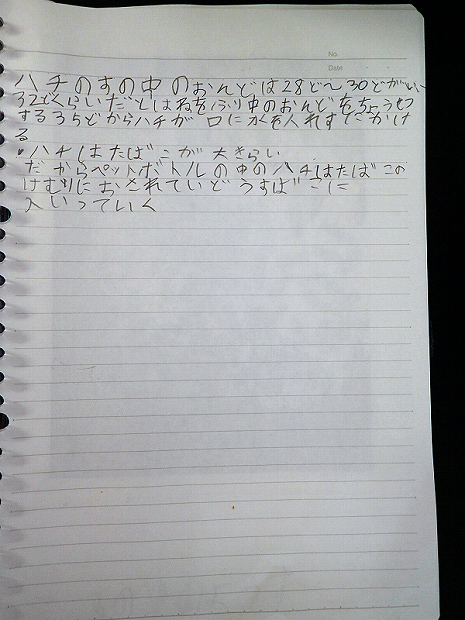 No.
Date
ハチのすの中のおんどは28ど～30どがいい
32どくらいだとはねをふり中のおんどをちょうせつ
する35どからハチが口に水を入れすにかけ
る
・ハチはたばこが大きらい
だからペットボトルの中のハチはたばこの
けむりにおされていどうすばこに
入いっていく